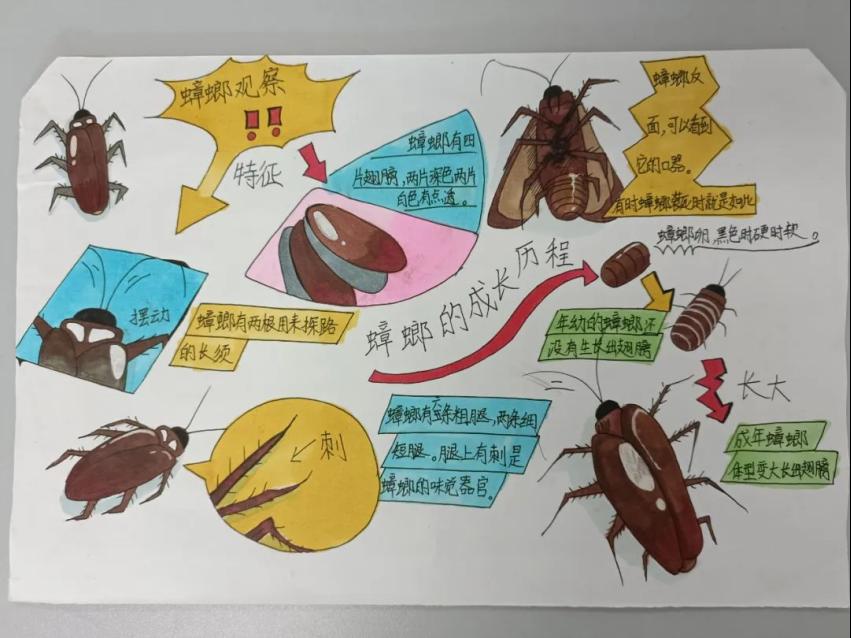 蟑螂观察
!!
特征
蟑螂有四
片翅膀,两片深色两片
白色有点透。
蟑螂反
面,可以看到
它的口器。
有时蟑螂装死时就是如此
蟑螂卵,黑色时硬时软。
摆动
蟑螂有两根用来探路
的长须
蟑螂的成长历程
年幼的蟑螂还
没有生长出翅膀
长大
成年蟑螂
体型变大长出翅膀
刺
蟑螂有六条粗腿,两条细
短腿。腿上有刺是
蟑螂的味觉器官。